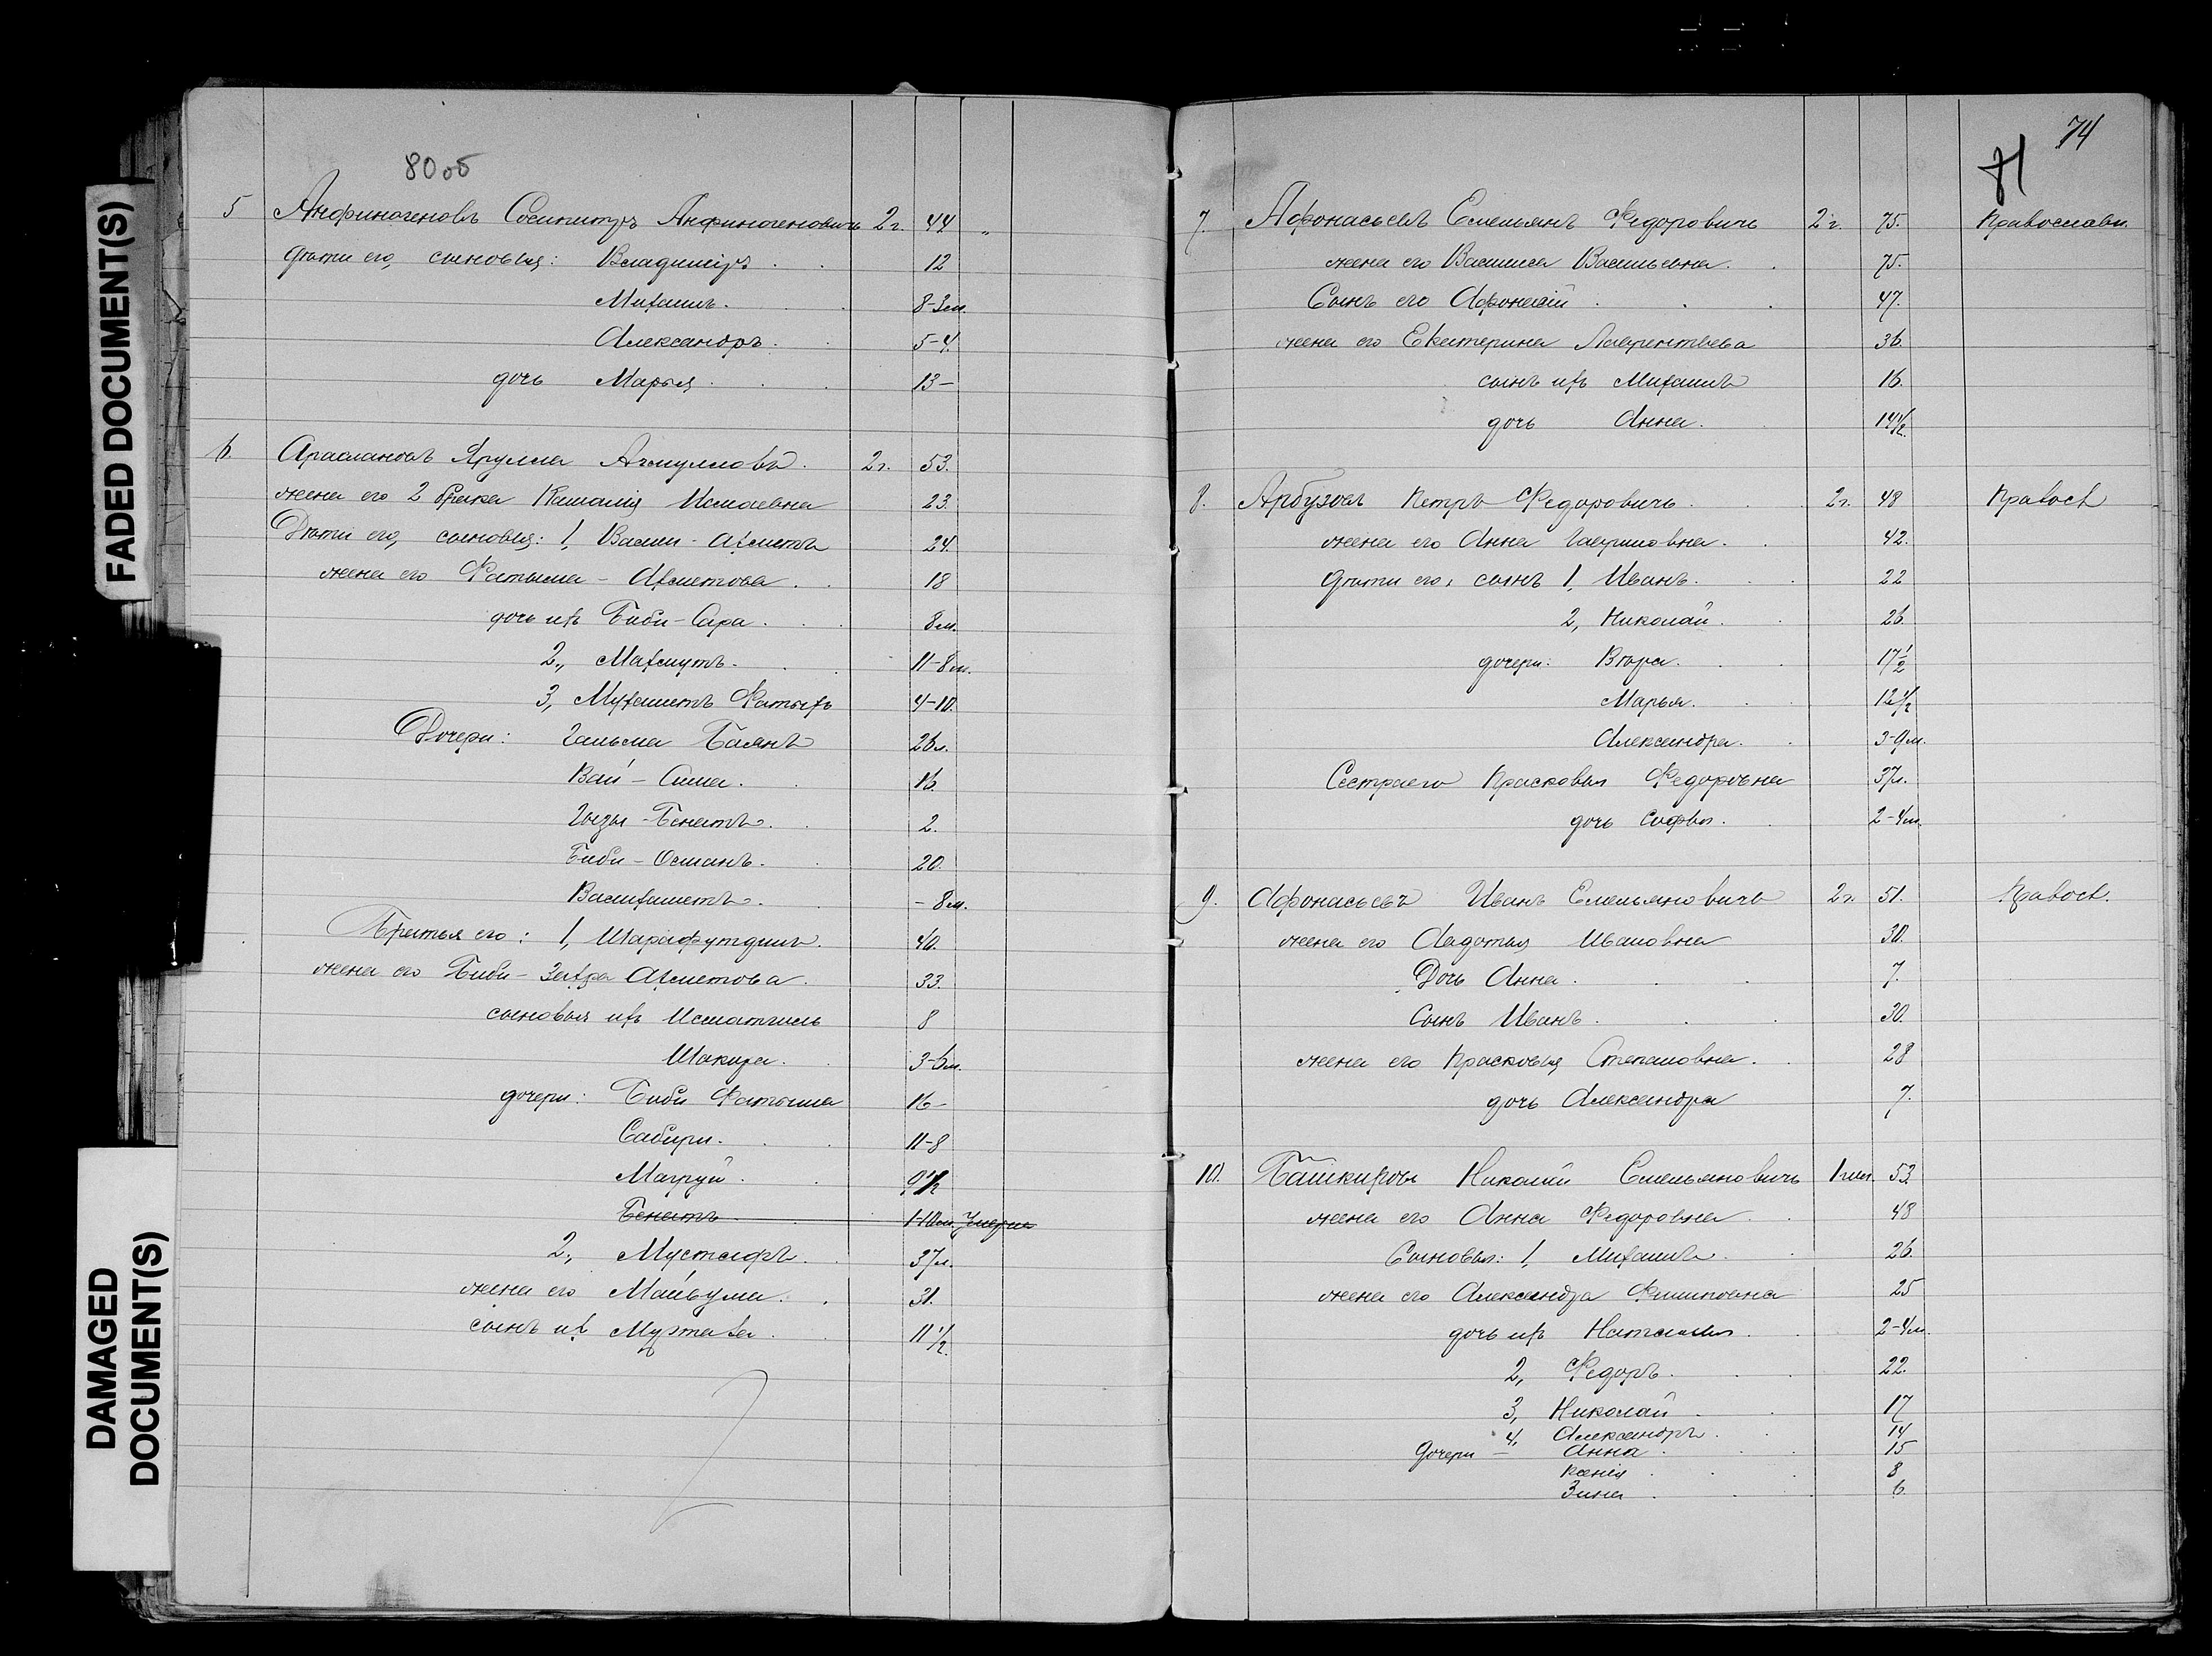 FADED DOCUMENT(S)
DAMAGED
DOCUMENT(S)
80 об
5 Анфиногеновъ Анфиногеновичъ 2 г. 44 "
Дѣти его, сыновья: Владиміръ . . 12
Михаилъ. . 8-3 м.
Александръ. . 5-4
дочь Марья . . . 13-
6. Араслановъ Ярулла 2 г. 53.
жена его 2 брака 23.
Дѣти его, сыновья: 1, Вали-Ахметъ 24.
жена его Фатыма-Ахметова . . 18
дочь ихъ Биби-Сара . . . 8 м.
2., Махмутъ. . 11-8 м.
3, Мухаметъ Фатыхъ 4-10.
Дочери: Баянъ 26 л.
16.
-Бенатъ. . 2.
Биби- . 20.
. - 8 м.
Братья его: 1, Шарафутдинъ. 40.
жена его Биби-Загра Ахметова. 33.
сыновья ихъ 8
Шакира. . 3-6 м.
дочери: Биби Фатыма 16-
Сабири. . . 11-8
Магруй . . 9 1/2
Бенатъ 1-10 м. Умерла
2., Мустафъ. . 37 л.
жена его . . 31.
сынъ ихъ . . 11 1/2.
74
81
7. Афонасьевъ Емельянъ Федоровичъ 2 г. 75. Православн.
жена его Василиса Васильевна. . 75.
Сынъ его Афонасій . . . 47.
жена его Екатерина Лаврентьева 36.
сынъ ихъ Михаилъ 16.
дочь Анна. 14 1/2.
8. Арбузовъ Петръ Федоровичъ . . . 2 г. 48 Правосл
жена его Анна Гавриловна. . 42.
Дѣти его: сынъ 1, Иванъ. . . 22
2, Николай. . 26.
дочери: Вѣра. . . 17 1/2
Марья. . . 12 1/2
Александра. . 3-9 м.
Сестра его Прасковья Федоровна 37 л.
дочь Софья. . 2-4 м.
9. Афонасьевъ Иванъ Емельяновичъ 2 г. 51. Правосл.
жена его Авдотья Ивановна 30.
Дочь Анна . . . 7.
Сынъ Иванъ . . . 30.
жена его Прасковья Степановна. 28
дочь Александра 7.
10. Башкировъ Николай Емельяновичъ 1 гил. 53.
жена его Анна Федоровна . 48
Сыновья: 1, Михаилъ. . 26.
жена его Александра Филиповна 25
дочь ихъ Наталья . . 2-4 м.
2, Федоръ. . . 22.
3, Николай . . 17
4, Александръ . . 14
Дочери - Анна . . . 15
Ксенія . . . 8
Зина . . . 6.